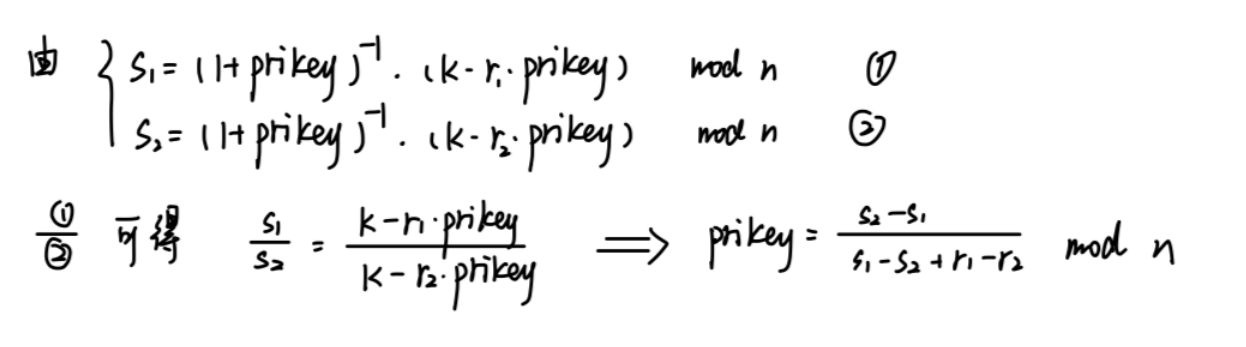 由 { s₁ = (1+prikey)⁻¹ · (k - r₁·prikey) mod n ①
s₂ = (1+prikey)⁻¹ · (k - r₂·prikey) mod n ②
①/② 可得 s₁/s₂ = (k - r₁·prikey)/(k - r₂·prikey) ⟹ prikey = (s₂ - s₁)/(s₁ - s₂ + r₁ - r₂) mod n